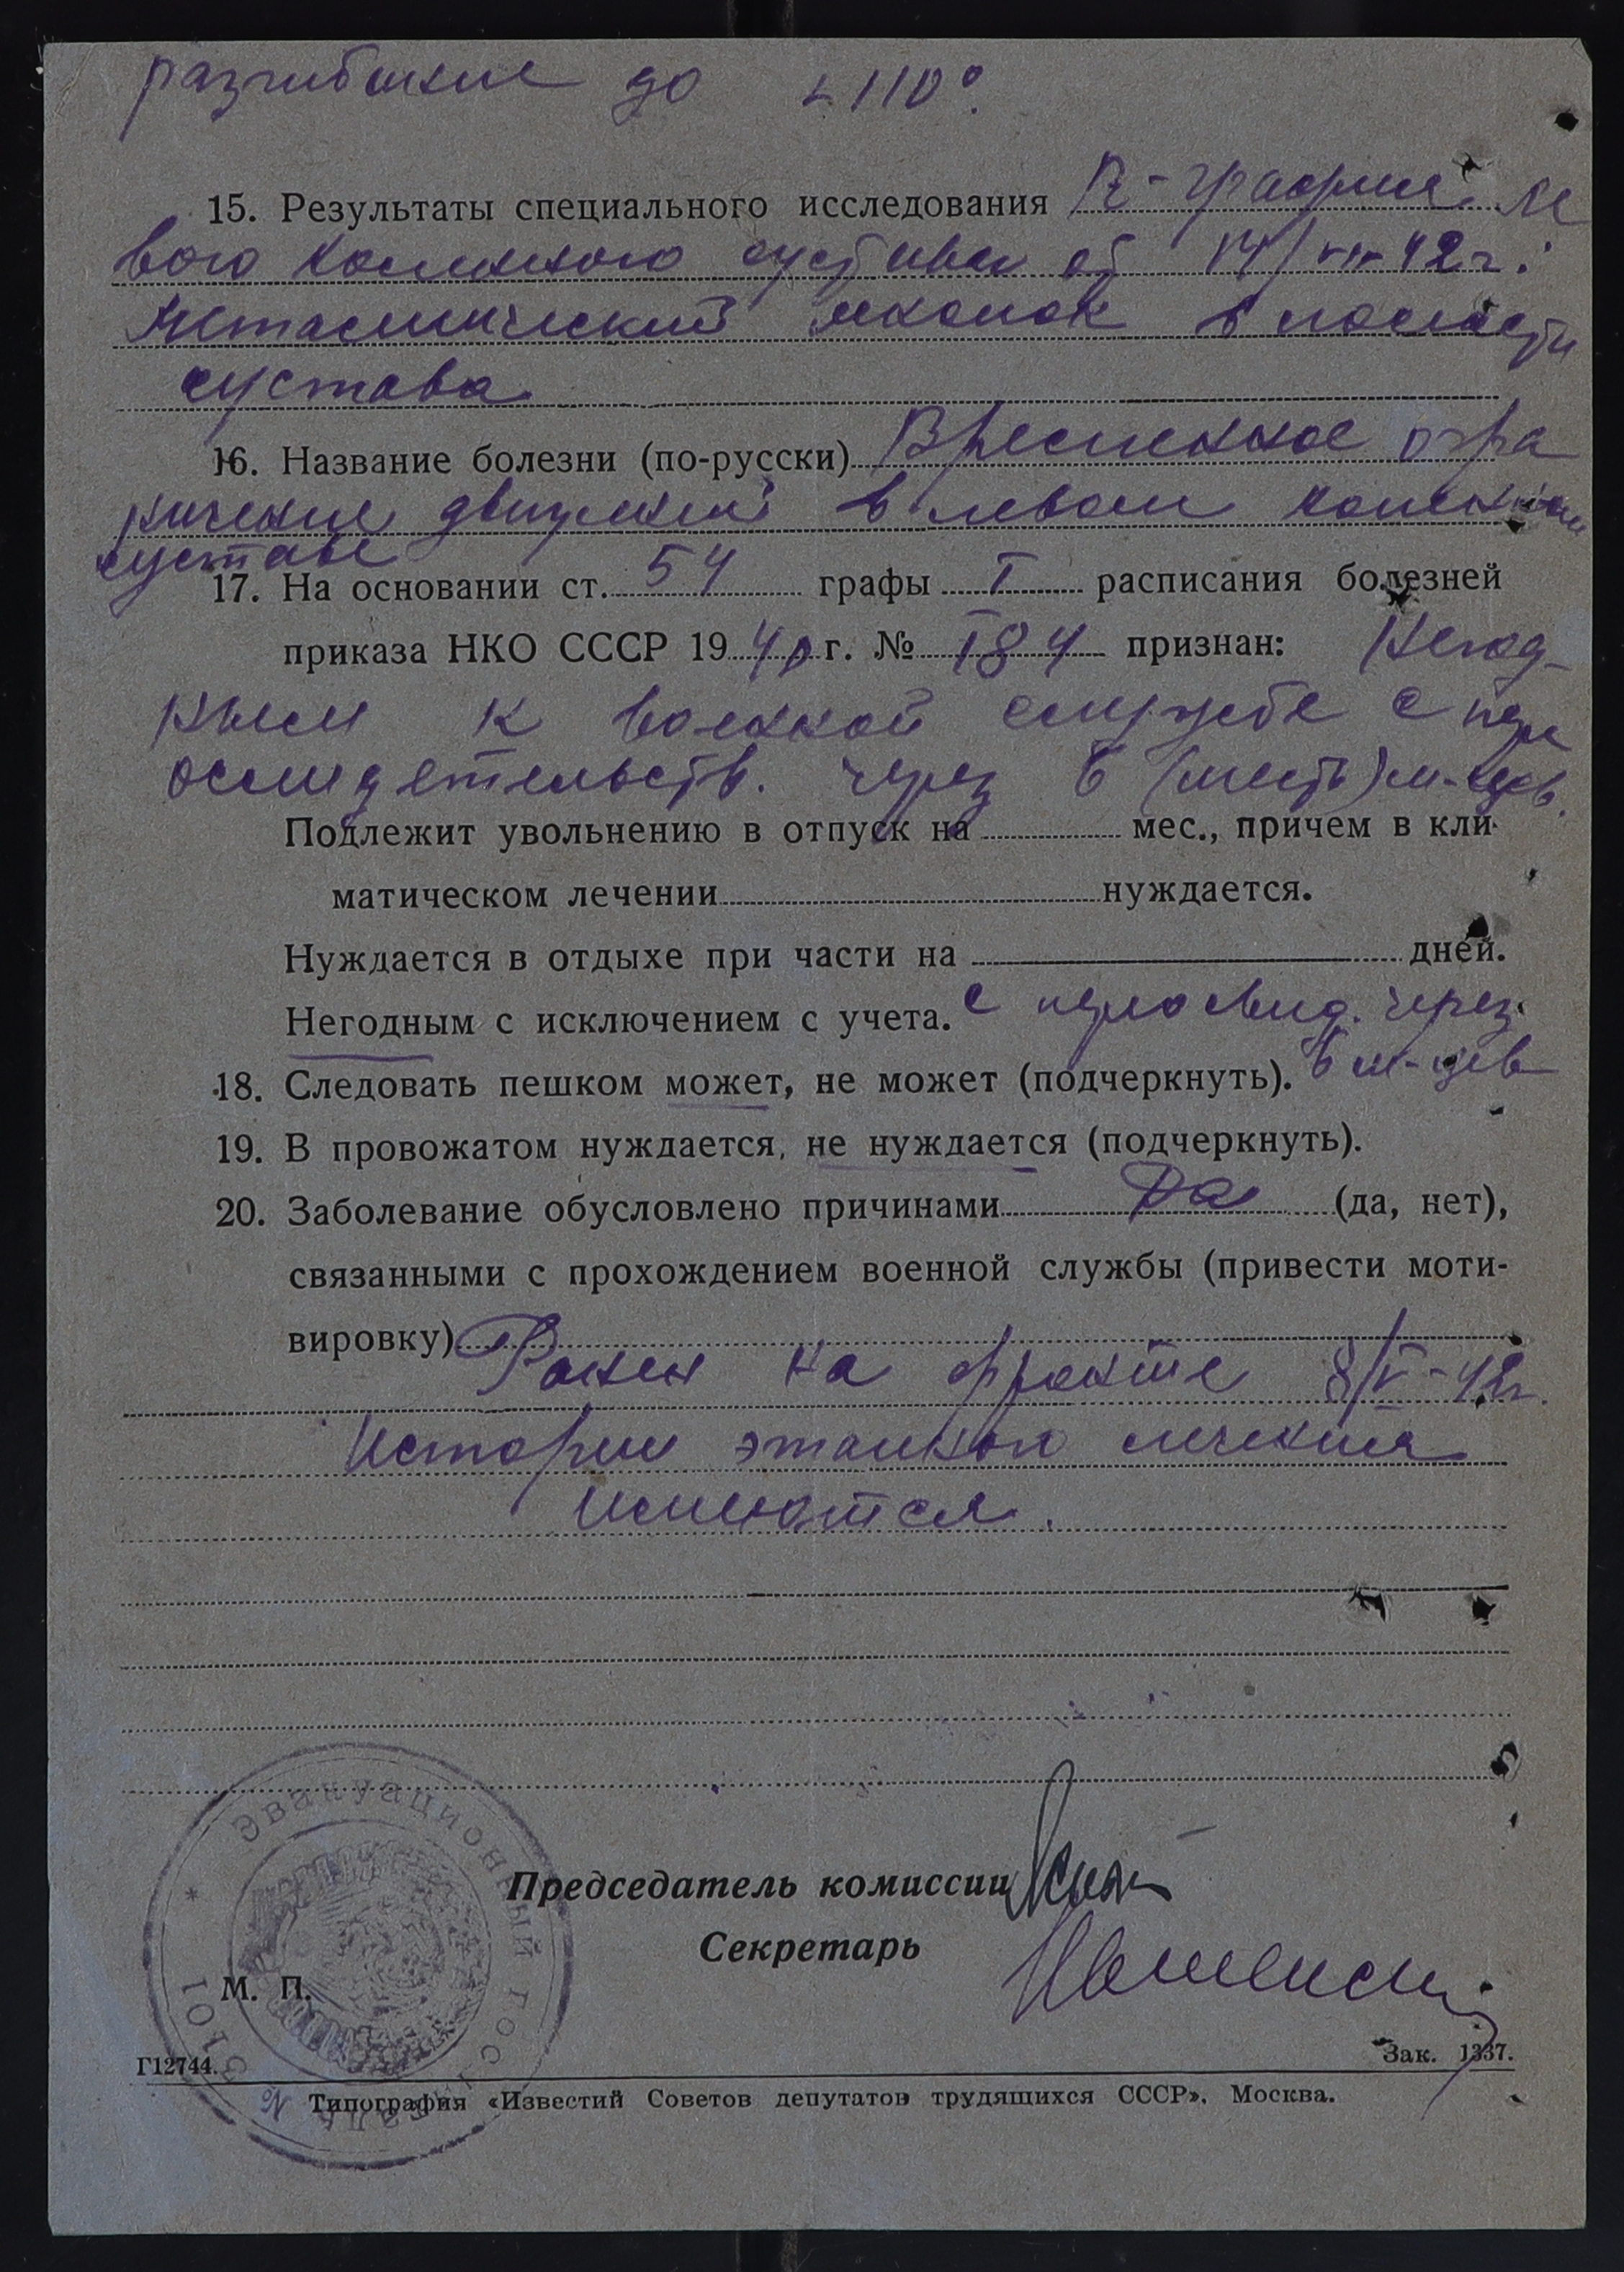 разгибание до ∠110°.
15. Результаты специального исследования R-графия ле
вого коленного сустава от 14/VII-42г.:
Металлический осколок в полости
сустава
16. Название болезни (по-русски) Временное огра
ничение движений в левом коленном
суставе
17. На основании ст. 54 графы I расписания болезней
приказа НКО СССР 1940 г. № 184 признан: Негод-
ным к военной службе с пере
освидетельств. через 6 (шесть) м-цев.
Подлежит увольнению в отпуск на мес., причем в кли-
матическом лечении нуждается.
Нуждается в отдыхе при части на дней.
Негодным с исключением с учета. с переосвид. через
6 м-цев
18. Следовать пешком может, не может (подчеркнуть).
19. В провожатом нуждается, не нуждается (подчеркнуть).
20. Заболевание обусловлено причинами Да (да, нет),
связанными с прохождением военной службы (привести моти-
вировку)
Ранен на фронте 8/V-42г.
Истории этапного лечения
имеются.
Эвакуационный госпиталь № 1015
Председатель комиссии
Секретарь
М. П.
Г12744. Зак. 1337.
Типография «Известий Советов депутатов трудящихся СССР». Москва.